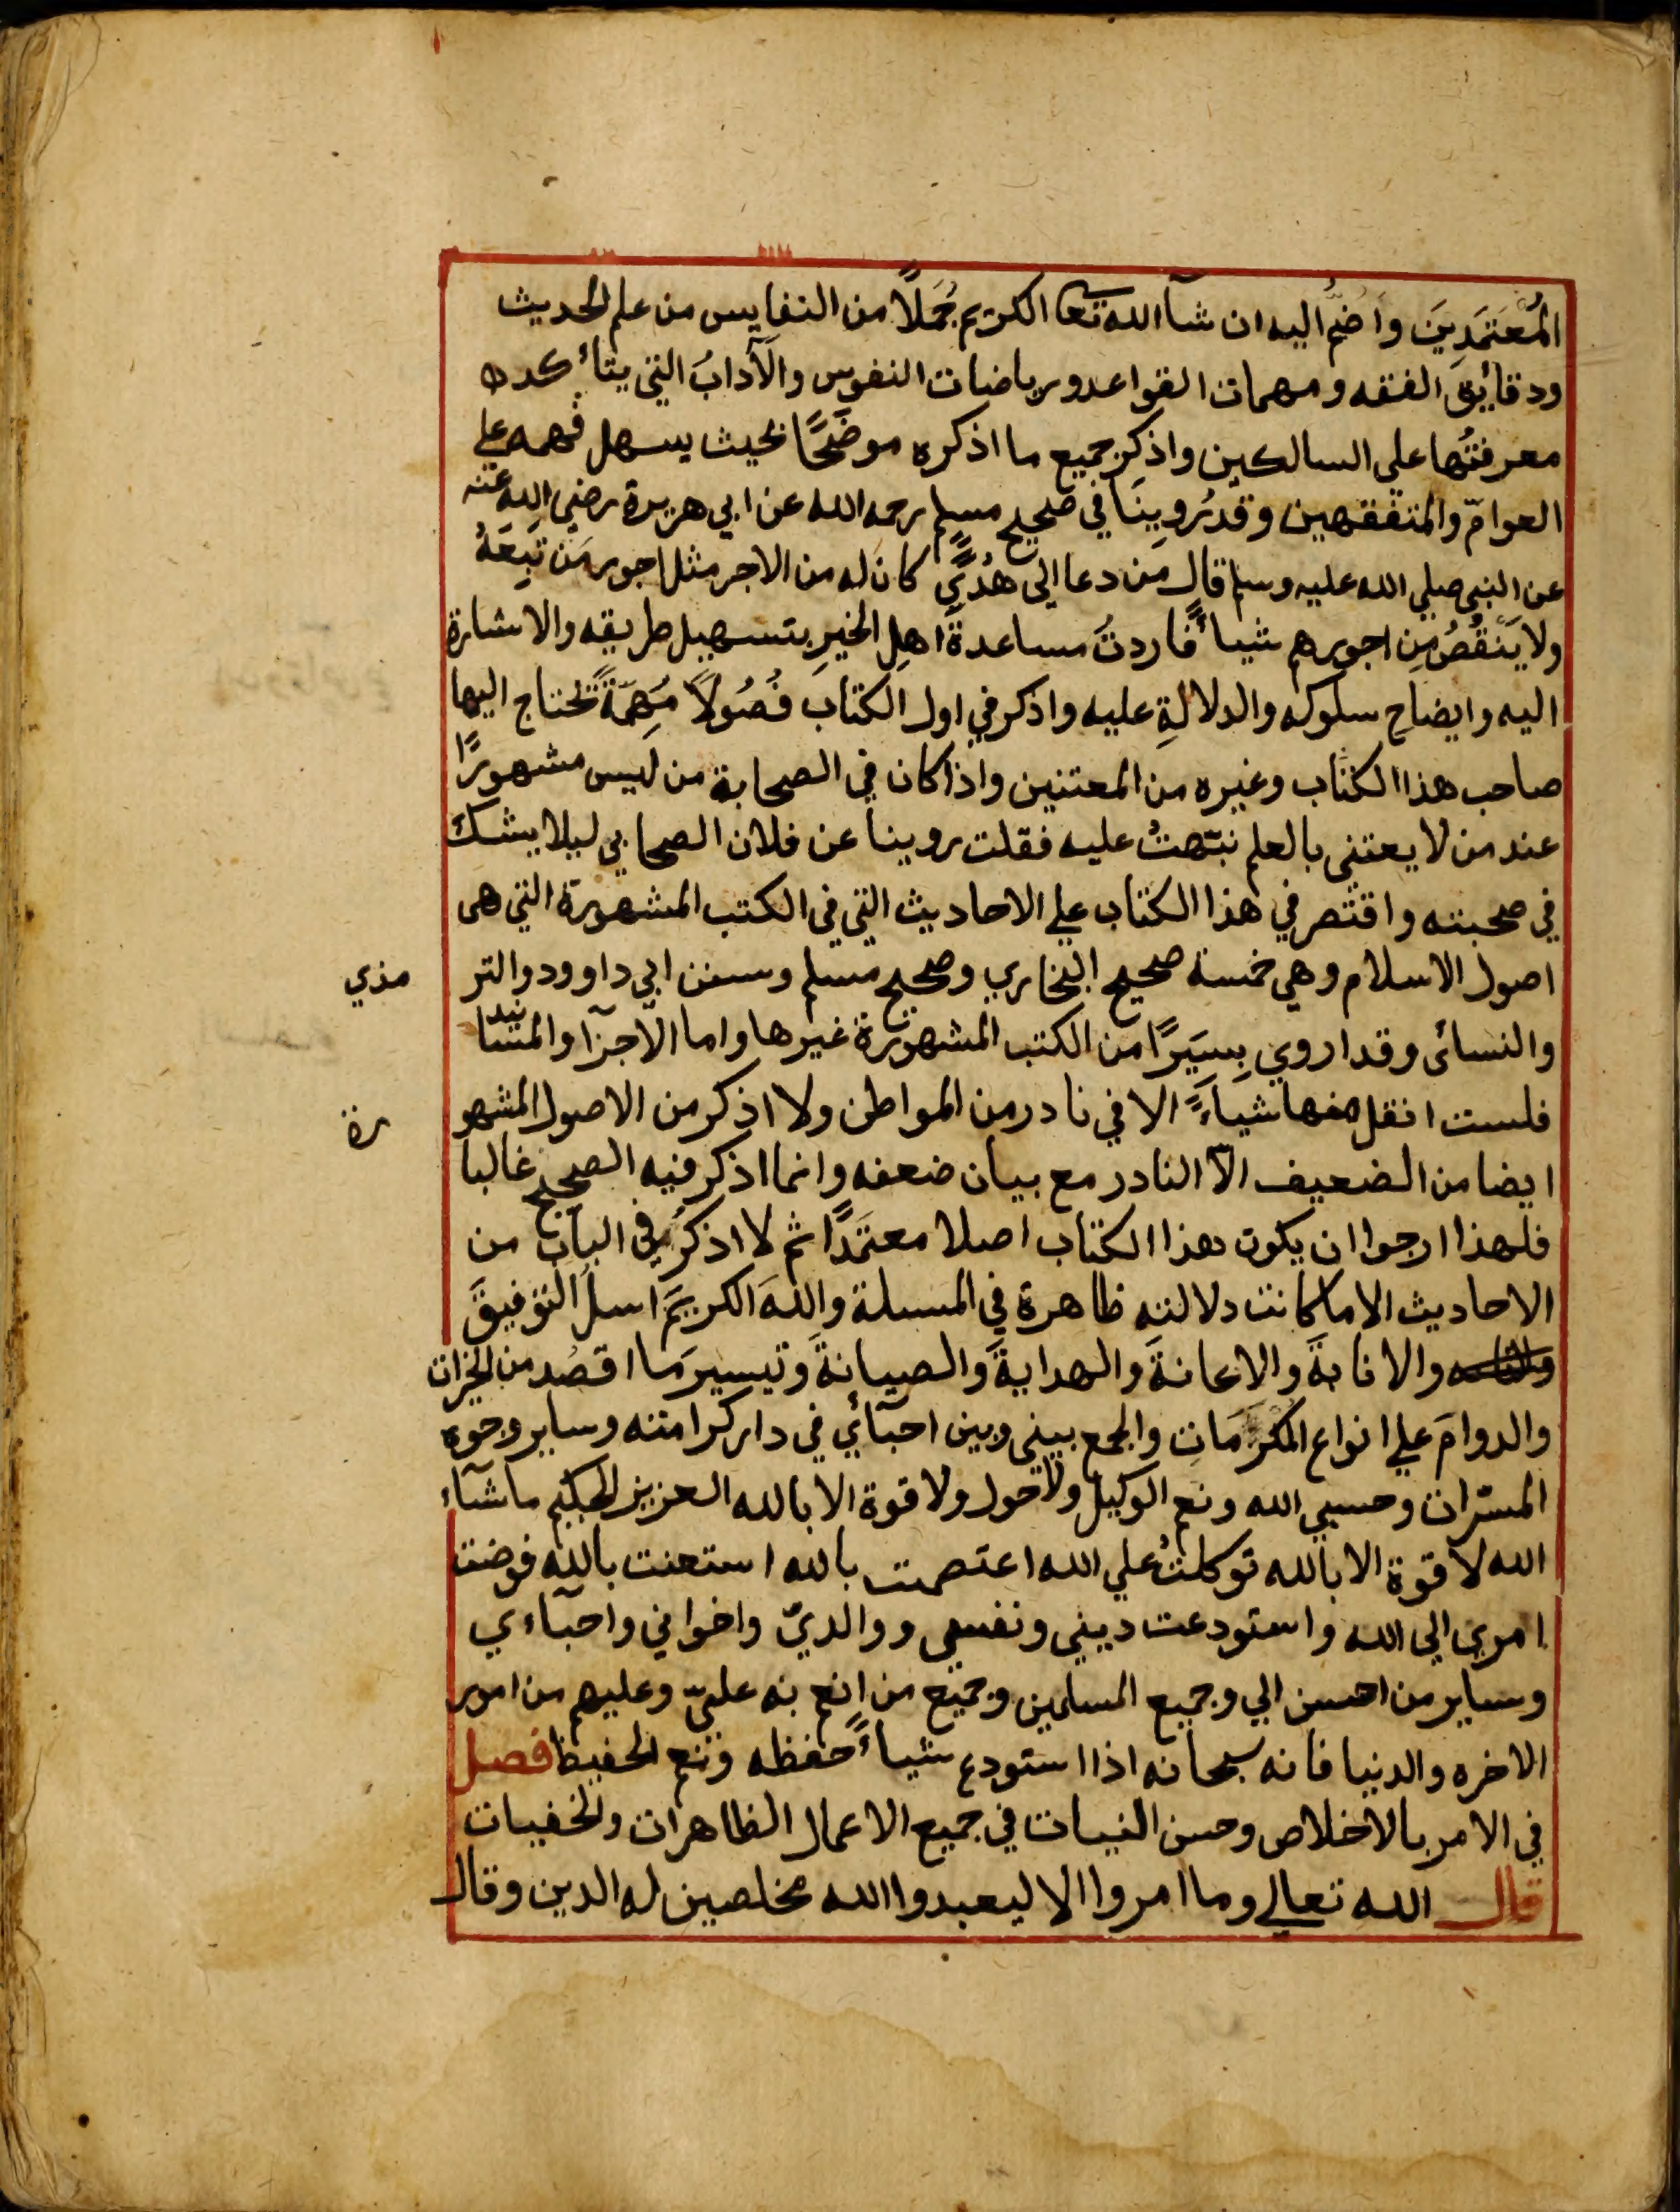 المُعْتَمَدِينَ وأضُمُّ اليه ان شآ الله تعا الكريم جُمَلاً من النفايس من علم الحديث
ودقايق الفقه ومهمات القواعد ورياضات النفوس والآدابُ التي يتأكده
معرفتُها على السالكين واذكر جميع ما اذكره موضَحًا بحيث يسهل فهمه على
العوامّ والمتفقهين وقد رُوينَا في صحيح مسلم رحمه الله عن ابي هريرة رضي الله عنه
عن النبي صلي الله عليه وسلم قال مَن دعا الى هُدًي كان له من الاجر مثل اجور مَن تَبِعَهُ
ولا يَنْقُصُ مِن اجورهم شيأً فاردتُ مساعدةَ اهلِ الخيرِ بتسهيل طريقه والاشارة
اليه وايضاح سلوكه والدلالةِ عليه واذكر في اول الكتاب فُصُولاً مُهِمَّةً تحتاج اليها
صاحب هذا الكتاب وغيره من المعتنين واذا كان في الصحابة من ليس مشهورًا
عند من لا يعتنى بالعلم نبّهتُ عليه فقلت روينا عن فلان الصحابي ليلا يشك
في صحبته واقتصر في هذا الكتاب علي الاحاديث التي في الكتب المشهورة التي هى
اصول الاسلام وهي خمسة صحيح البخاري وصحيح مسلم وسنن ابي داوود والتر مذي
والنسائى وقد اروي يِسيَرًا من الكتب المشهورة غيرها واما الاجزآ والمسانيد
فلست انقل منها شيأً الا في نادر من المواطن ولا اذكر من الاصول المشهو رة
ايضا من الضعيف الاّ النادر مع بيان ضعفه وانما اذكر فيه الصحيح غالبا
فلهذا ارجوا ان يكون هذا الكتاب اصلا معتمَدًا ثم لا اذكرُ في الباب من
الاحاديث الا ما كانت دلالته ظاهرة في المسلة واللهَ الكريمَ اسلُ التوفيقَ
والانابةَ والاعانةَ والهدايةَ والصيانةَ وتيسيرَ ما اقصُد من الخيرات
والدوامَ علي انواع المكرمَاتِ والجمع بيني وبين احبآئي في دار كرامته وساير وجوه
المسرّات وحسبي الله ونعم الوكيل ولا حول ولا قوة الا بالله العزيز الحكيم ماشآء
الله لا قوة الا بالله توكلتُ علي الله اعتصمت بالله استعنت بالله فوضت
امري الي الله واستودعت ديني ونفسي ووالديّ واخواني واحبآءي
وساير من احسن الي وجميع المسلمين وجميع من انعم به علىّ وعليهم من امور
الاخره والدنيا فانه سبحانه اذا استودع شيأً حفظه ونعم الحفيظ فصل
في الامر بالاخلاص وحسن النيات في جميع الاعمال الظاهرات والخفيات
قال الله تعالي وما امروا الا ليعبدوا الله مخلصين له الدين وقال